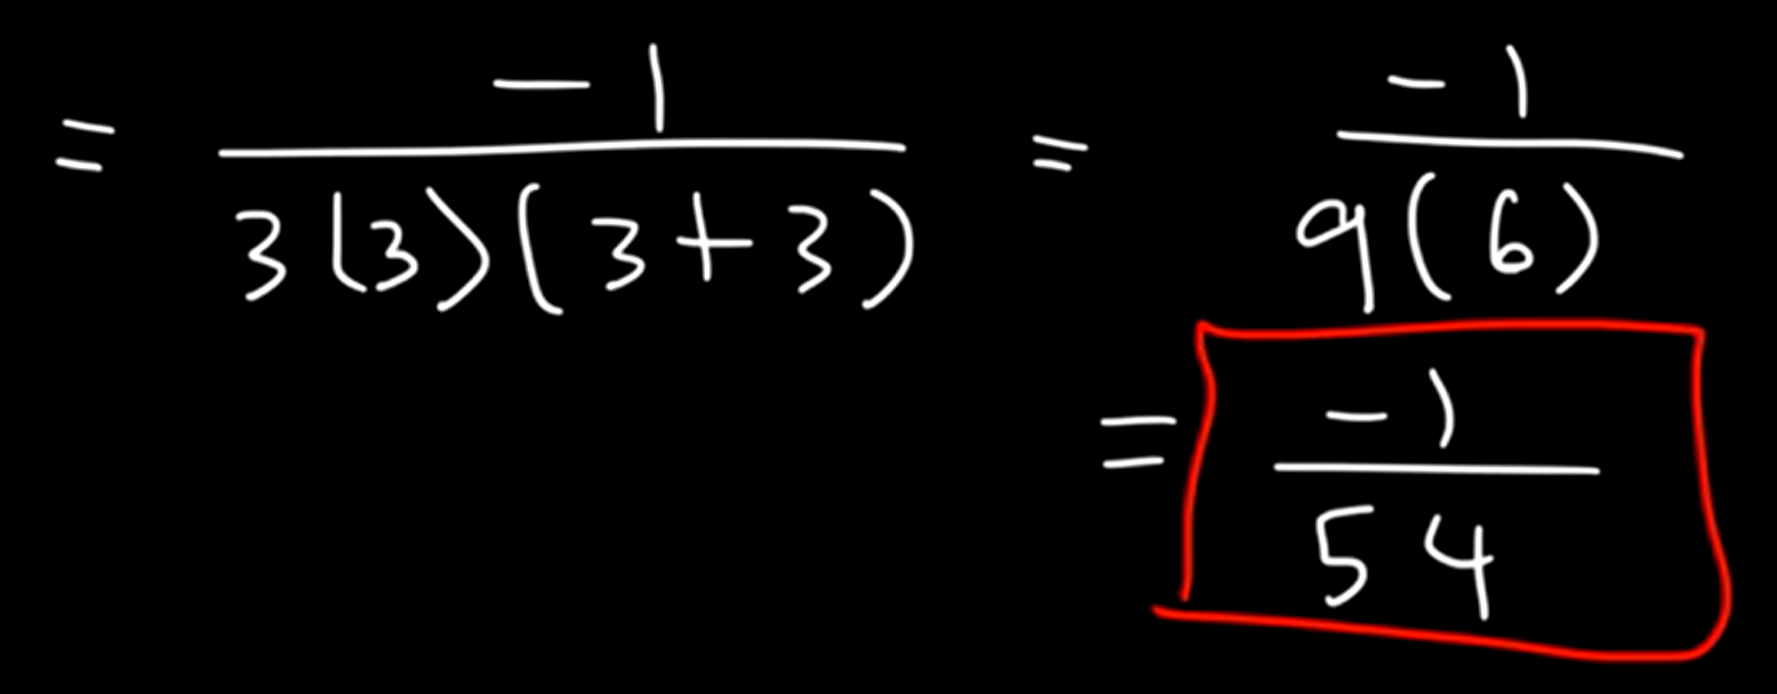 = -1/(3(3)(3+3)) = -1/(9(6))
= -1/54